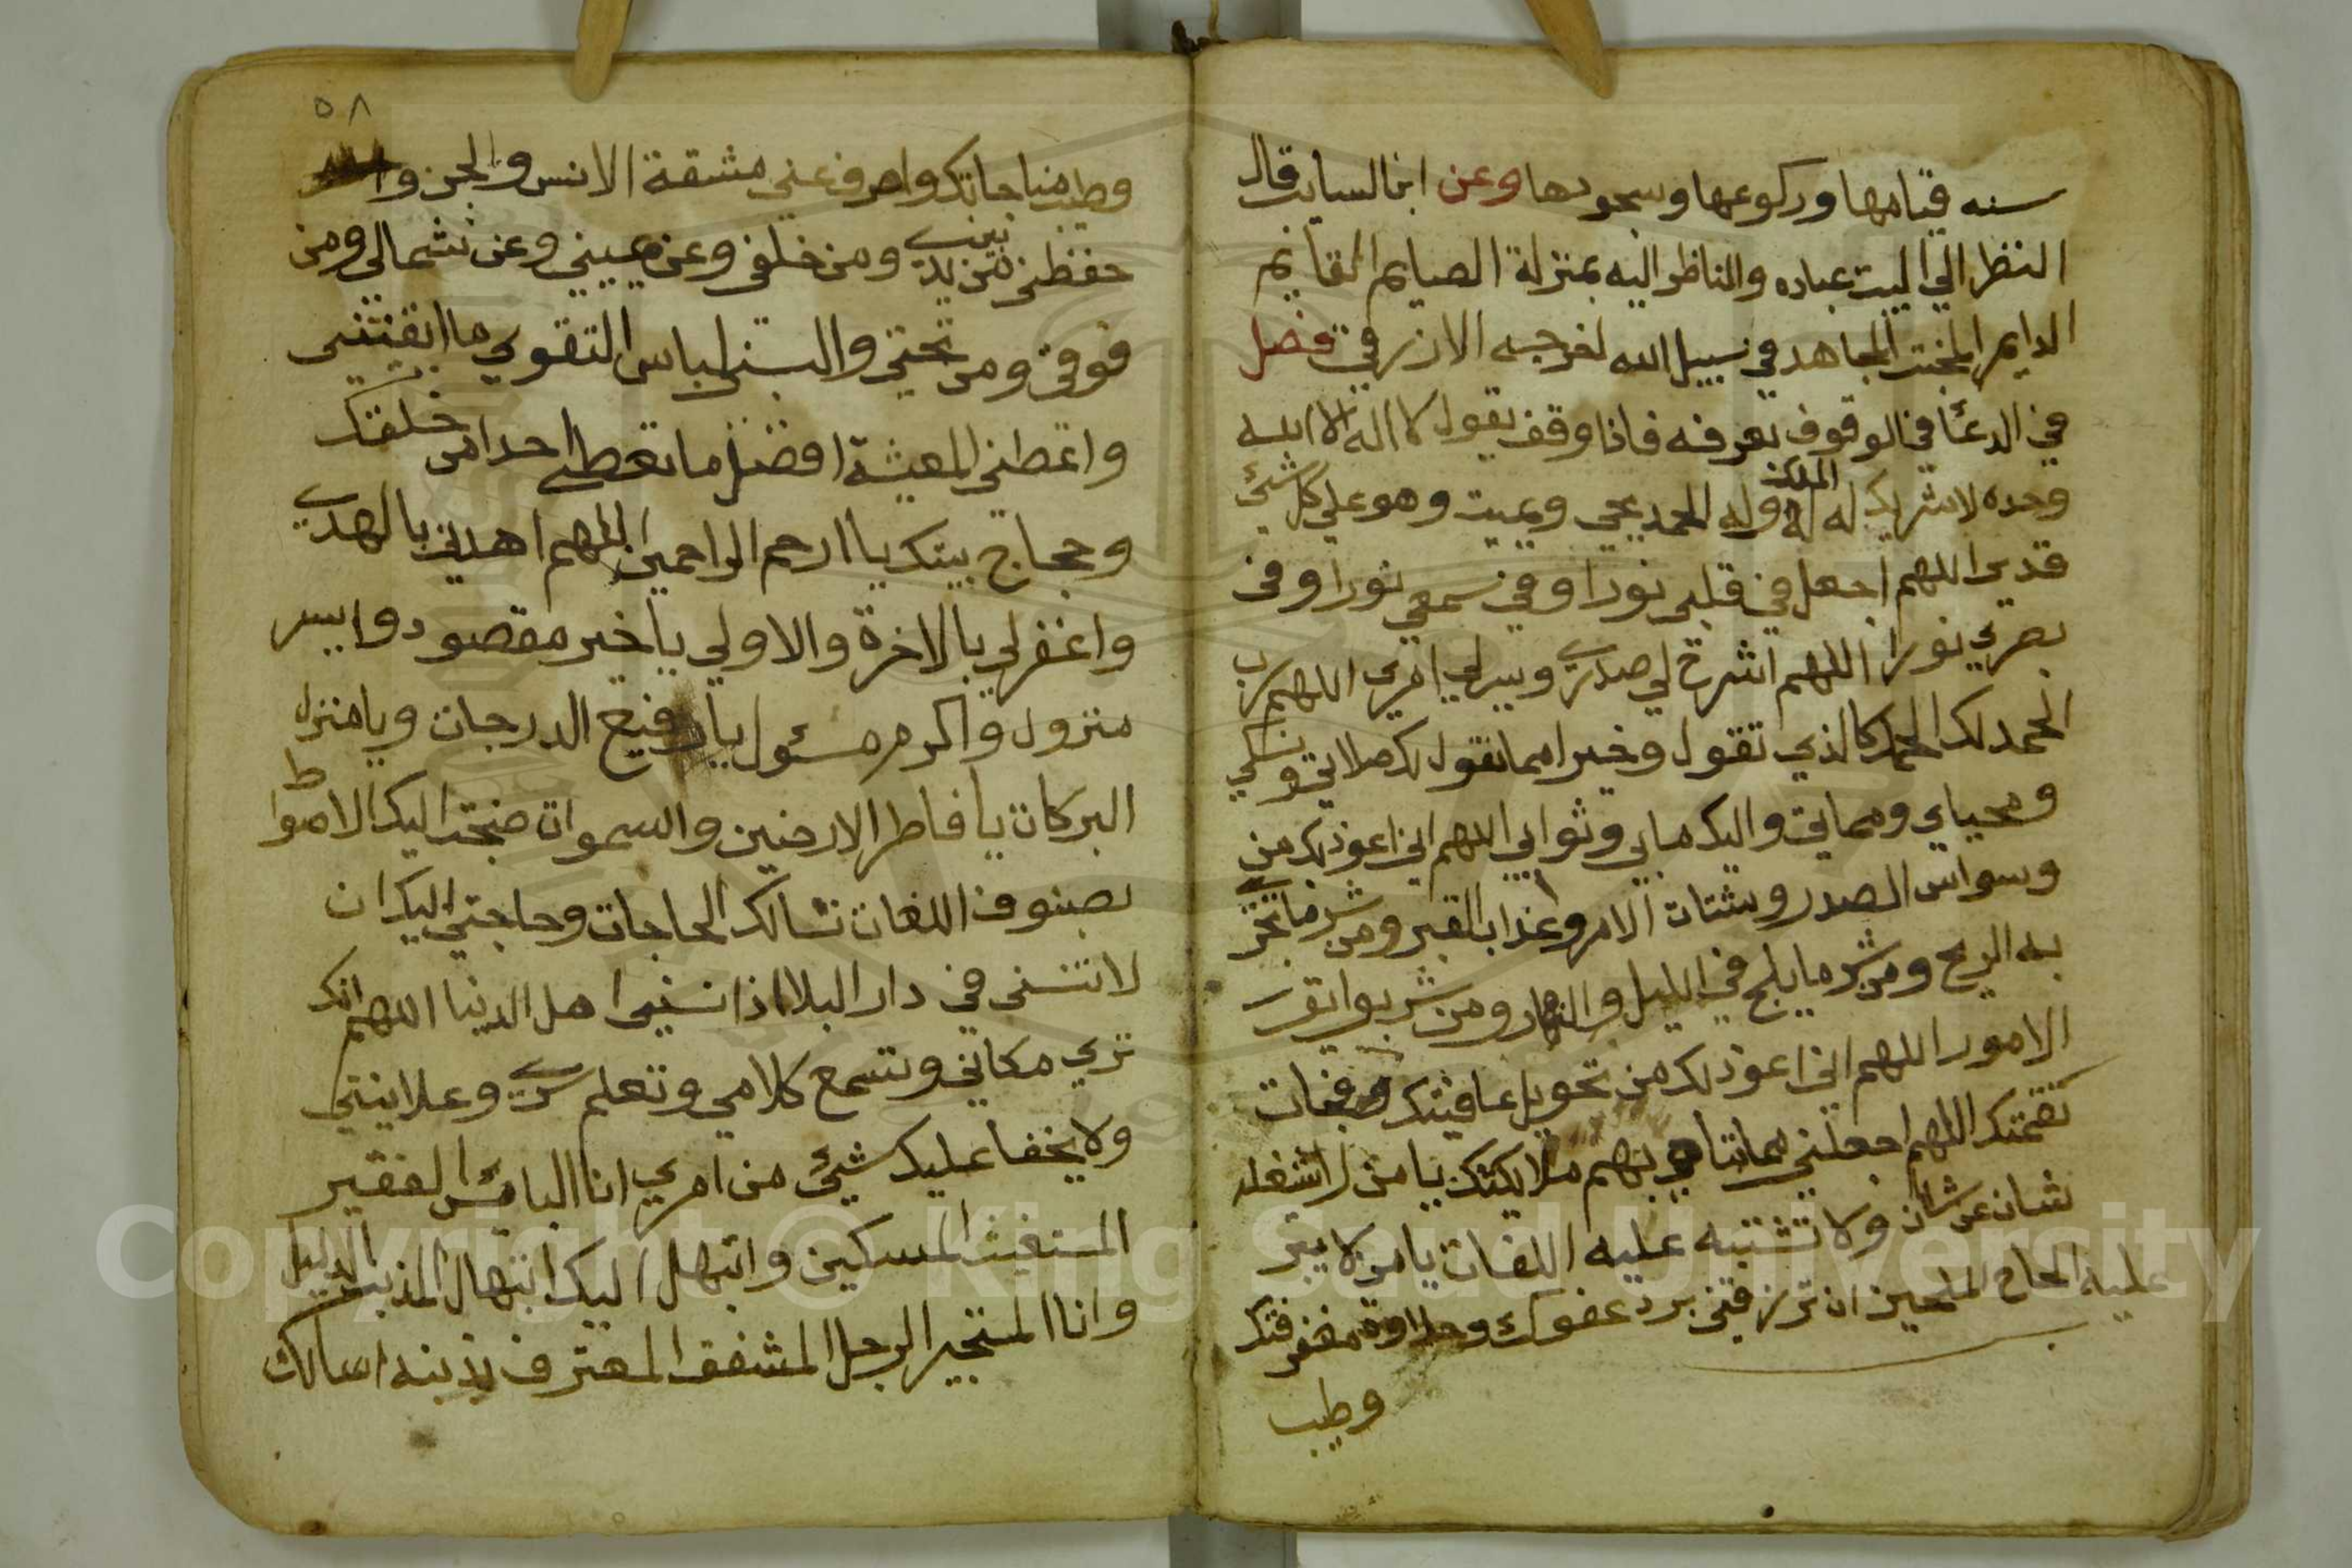 سنه قيامها وركوعها وسجودها وعن ابن السايب قال
النظر الي البيت عباده والناظر اليه بمنزلة الصايم القايم
الدايم المخبت المجاهد في سبيل الله اخرجه الازرقي فصل
في الدعا في الوقوف بعرفه فاذا وقف يقول لا اله الا الله
وحده لا شريك له له الملك وله الحمد يحي ويميت وهو علي كل شيئ
قدير اللهم اجعل في قلبي نورا وفي سمعي نورا وفي
بصري نورا اللهم اشرح لي صدري ويسر لي امري اللهم رب
الحمد لك الحمد كالذي تقول وخيرا مما نقول لك صلاتي ونسكي
ومحياي ومماتي واليك مابي وثوابي اللهم اني اعوذ بك من
وسواس الصدر وشتات الامر وعذاب القبر ومن شر ما تجري
به الريح ومن شر ما يلج في الليل والنهار ومن شر بوايق
الامور اللهم اني اعوذ بك من تحويل عافيتك وفجات
نقمتك اللهم اجعلني مما تباهي بهم ملايكتك يا من لا يشغله
شان عن شان ولا تشتبه عليه اللغات يا من لا يتبر
عليه الحاح الملحين ان ترزقني برد عفوك وحلاوة مغفرتك
وطيب
٥٨
وطيب مناجاتك واصرف عني مشقة الانس والجن
حفظني من بين يدي ومن خلفي وعن يميني وعن شمالي ومن
فوقي ومن تحتي والبسني لباس التقوي ما ابقيتني
واعطني المعيشة افضل ما تعطي احدا من خلقك
وحجاج بيتك يا ارحم الراحمين اللهم اهدني بالهدي
واغفر لي بالاخرة والاولي يا خير مقصود وايسر
منزول واكرم مسئول يا رفيع الدرجات ويا منزل
البركات يا فاطر الارضين والسموات ضجت اليك الاصوات
بصنوف اللغات تسالك الحاجات وحاجتي اليك ان
لا تنسني في دار البلا اذا نسيني اهل الدنيا اللهم انك
تري مكاني وتسمع كلامي وتعلم سري وعلانيتي
ولا يخفا عليك شيئ من امري انا البائس الفقير
المستغيث المسكين وابتهل اليك ابتهال المذنب الذليل
وانا المستجير الرجل المشفق المعترف بذنبه اسالك
Copyright © King Saud University